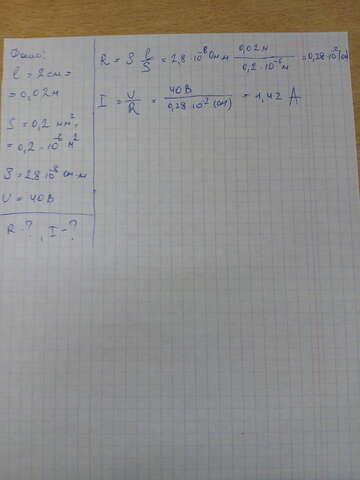 Дано:
l = 2 см =
= 0,02 м
S = 0,2 мм²,
= 0,2 · 10⁻⁶ м²
ρ = 28 · 10⁻⁸ Ом·м
U = 40 В
R - ? , I - ?
R = ρ l/S = 2,8 · 10⁻⁸ Ом·м 0,02 м / 0,2 · 10⁻⁶ м = 0,28 · 10²
I = U/R = 40 В / 0,28 · 10² (Ом) = 1,42 А